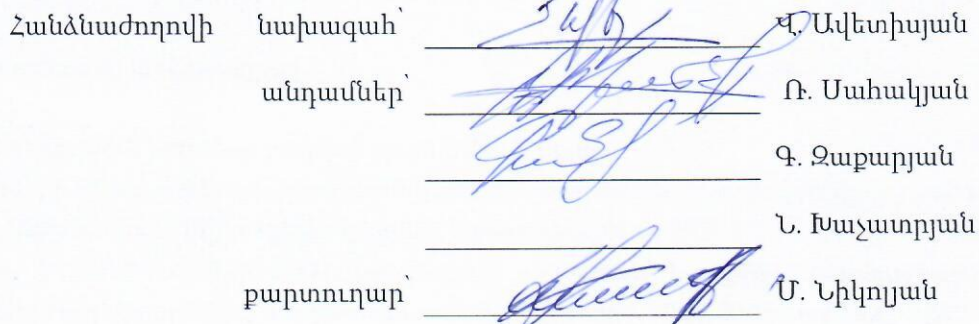 Հանձնաժողովի նախագահ՝ Վ. Ավետիսյան
անդամներ՝ Ռ. Սահակյան
Գ. Զաքարյան
Ն. Խաչատրյան
քարտուղար՝ Մ. Նիկոլյան